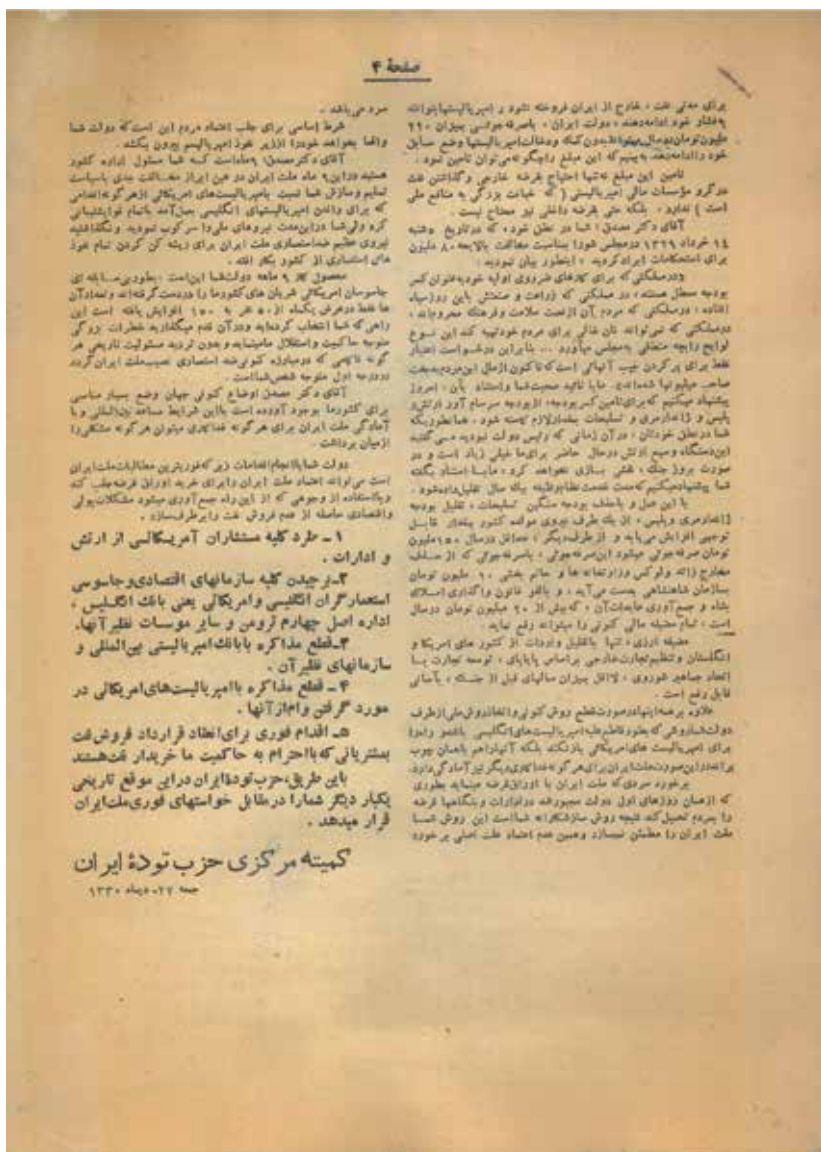 صفحهٔ ۴
برای مدتی نفت، خارج از ایران فروخته نشود و امپریالیستها بتوانند
بفشار خود ادامه دهند، دولت ایران، با صرفه جوئی بمیزان ۲۲۰
ملیون تومان در سال میتواند بدون کمک و دخالت امپریالیستها وضع سابق
خود را ادامه دهد ببینیم که این مبلغ را چگونه می توان تامین نمود.
تامین این مبلغ نه تنها احتیاج بقرضه خارجی و گذاشتن نفت
در گرو مؤسسات مالی امپریالیستی (که خیانت بزرگی به منافع ملی
است) ندارد، بلکه حتی بقرضه داخلی نیز محتاج نیست.
آقای دکتر مصدق؛ شما در نطق خود، که در تاریخ شنبه
۱۴ خرداد ۱۳۲۹ در مجلس شورا بمناسبت مخالفت با لایحه ۸۰ ملیون
برای استحکامات ایراد کردید، اینطور بیان نمودید:
«در مملکتی که برای کارهای ضروری اولیه خود بعنوان کسر
بودجه معطل هستند، در مملکتی که زراعت و صنعتش باین روز سیاه
افتاده، در مملکتی که مردم آن از نعمت سلامت و فرهنگ محرومند،
در مملکتی که نمی تواند نان خالی برای مردم خود تهیه کند این نوع
لوایح را بچه منطقی بمجلس میآورد ... بنابراین درخواست اعتبار
فقط برای پر کردن جیب آنهائی است که تا کنون از مال این مردم بدبخت
صاحب میلیونها شده اند» ما با تائید صحبت شما و استناد بآن، امروز
پیشنهاد میکنیم که برای تامین کسر بودجه، از بودجه سرسام آور ارتش و
پلیس و ژاندارمری و تسلیحات بمقدار لازم کاسته شود. همانطوریکه
شما در نطق خودتان، در آن زمانی که رئیس دولت نبودید میگفتید
این دستگاه وسیع ارتش در حال حاضر برای ما خیلی زیاد است و در
صورت بروز جنگ، نقشی بازی نخواهد کرد، ما با استناد بگفته
شما پیشنهاد میکنیم که مدت خدمت نظام وظیفه بیک سال تقلیل داده شود.
با این عمل و با حذف بودجه سنگین تسلیحات، تقلیل بودجه
ژاندارمری و پلیس، از یک طرف نیروی مولده کشور بمقدار قابل
توجهی افزایش می یابد و از طرف دیگر، حداقل در سال ۱۵۰ ملیون
تومان صرفه جوئی میشود این صرفه جوئی، با صرفه جوئی که از حذف
مخارج زائد و لوکس وزارتخانه ها و حاتم بخشی ۱۰ ملیون تومان
بسازمان شاهنشاهی بدست می آید، و با لغو قانون واگذاری املاک
بشاه و جمع آوری عایدات آن، که بیش از ۲۰ میلیون تومان در سال
است، تمام مضیقه مالی کنونی را میتواند رفع نماید.
مضیقه ارزی، تنها با تقلیل واردات از کشور های امریکا و
انگلستان و تنظیم تجارت خارجی بر اساس پایاپای، توسعه تجارت با
اتحاد جماهیر شوروی، لااقل بمیزان سالهای قبل از جنگ، بآسانی
قابل رفع است.
علاوه بر همه اینها در صورت قطع روش کنونی و اتخاذ روش ملی از طرف
دولت شما، روشی که بطور قاطع علیه امپریالیست های انگلیسی باشد و راه را
برای امپریالیست های امریکائی باز نکند بلکه آنها را هم با همان چوب
براند در این صورت ملت ایران برای هر گونه فداکاری دیگر نیز آمادگی دارد.
برخورد سردی که ملت ایران با اوراق قرضه مینماید بطوری
که از همان روزهای اول دولت مجبور شد در ادارات و بنگاهها قرضه
را بمردم تحمیل کند نتیجه روش سازشکارانه شما است این روش شما
ملت ایران را مطمئن نمیسازد و همین عدم اعتماد علت اصلی برخورد
سرد می باشد.
شرط اساسی برای جلب اعتماد مردم این است که دولت شما
واقعا بخواهد خود را از زیر نفوذ امپریالیسم بیرون بکشد.
آقای دکتر مصدق، ۹ ماه است که شما مسئول اداره کشور
هستید در این ۹ ماه ملت ایران در عین ابراز مخالفت جدی با سیاست
تسلیم و سازش شما نسبت بامپریالیست های امریکائی از هر گونه اقدامی
که برای راندن امپریالیستهای انگلیسی بعمل آمد با تمام قوا پشتیبانی
کرد ولی شما در این مدت نیروهای ملی را سرکوب نمودید و نگذاشتید
نیروی عظیم ضد استعماری ملت ایران برای ریشه کن کردن تمام نفوذ
های استعماری از کشور بکار افتد.
محصول کار ۹ ماهه دولت شما این است، بطور بی سابقه ای
جاسوسان امریکائی شریان های کشور ما را در دست گرفته اند و تعداد آن
ها فقط در عرض یکماه از ۵۰ نفر به ۱۵۰ افزایش یافته است این
راهی که شما انتخاب کرده اید و در آن قدم میگذارید خطرات بزرگی
متوجه حاکمیت و استقلال ما مینماید و بدون تردید مسئولیت تاریخی هر
گونه ناکامی که در مبارزه کنونی ضد استعماری نصیب ملت ایران گردد
در درجه اول متوجه شخص شما است.
آقای دکتر مصدق اوضاع کنونی جهان وضع بسیار مناسبی
برای کشور ما بوجود آورده است با این شرایط مساعد بین المللی و با
آمادگی ملت ایران برای هر گونه فداکاری میتوان هر گونه مشکلی را
از میان برداشت.
دولت شما با انجام اقدامات زیر که فوریترین مطالبات ملت ایران
است می تواند اعتماد ملت ایران را برای خرید اوراق قرضه جلب کند
و با استفاده از وجوهی که از این راه جمع آوری میشود مشکلات پولی
و اقتصادی حاصله از عدم فروش نفت را برطرف سازد.
۱ - طرد کلیه مستشاران آمریکائی از ارتش
و ادارات.
۲- برچیدن کلیه سازمانهای اقتصادی و جاسوسی
استعمارگران انگلیسی و امریکائی یعنی بانک انگلیس،
اداره اصل چهارم ترومن و سایر موسسات نظیر آنها.
۳- قطع مذاکره با بانک امپریالیستی بین المللی و
سازمانهای نظیر آن.
۴ - قطع مذاکره با امپریالیست های امریکائی در
مورد گرفتن وام از آنها.
۵- اقدام فوری برای انعقاد قرارداد فروش نفت
بمشتریانی که با احترام به حاکمیت ما خریدار نفت هستند
باین طریق، حزب تودهٔ ایران در این موقع تاریخی
یکبار دیگر شما را در مقابل خواستهای فوری ملت ایران
قرار میدهد.
کمیته مرکزی حزب تودهٔ ایران
جمعه ۲۷ دیماه ۱۳۳۰